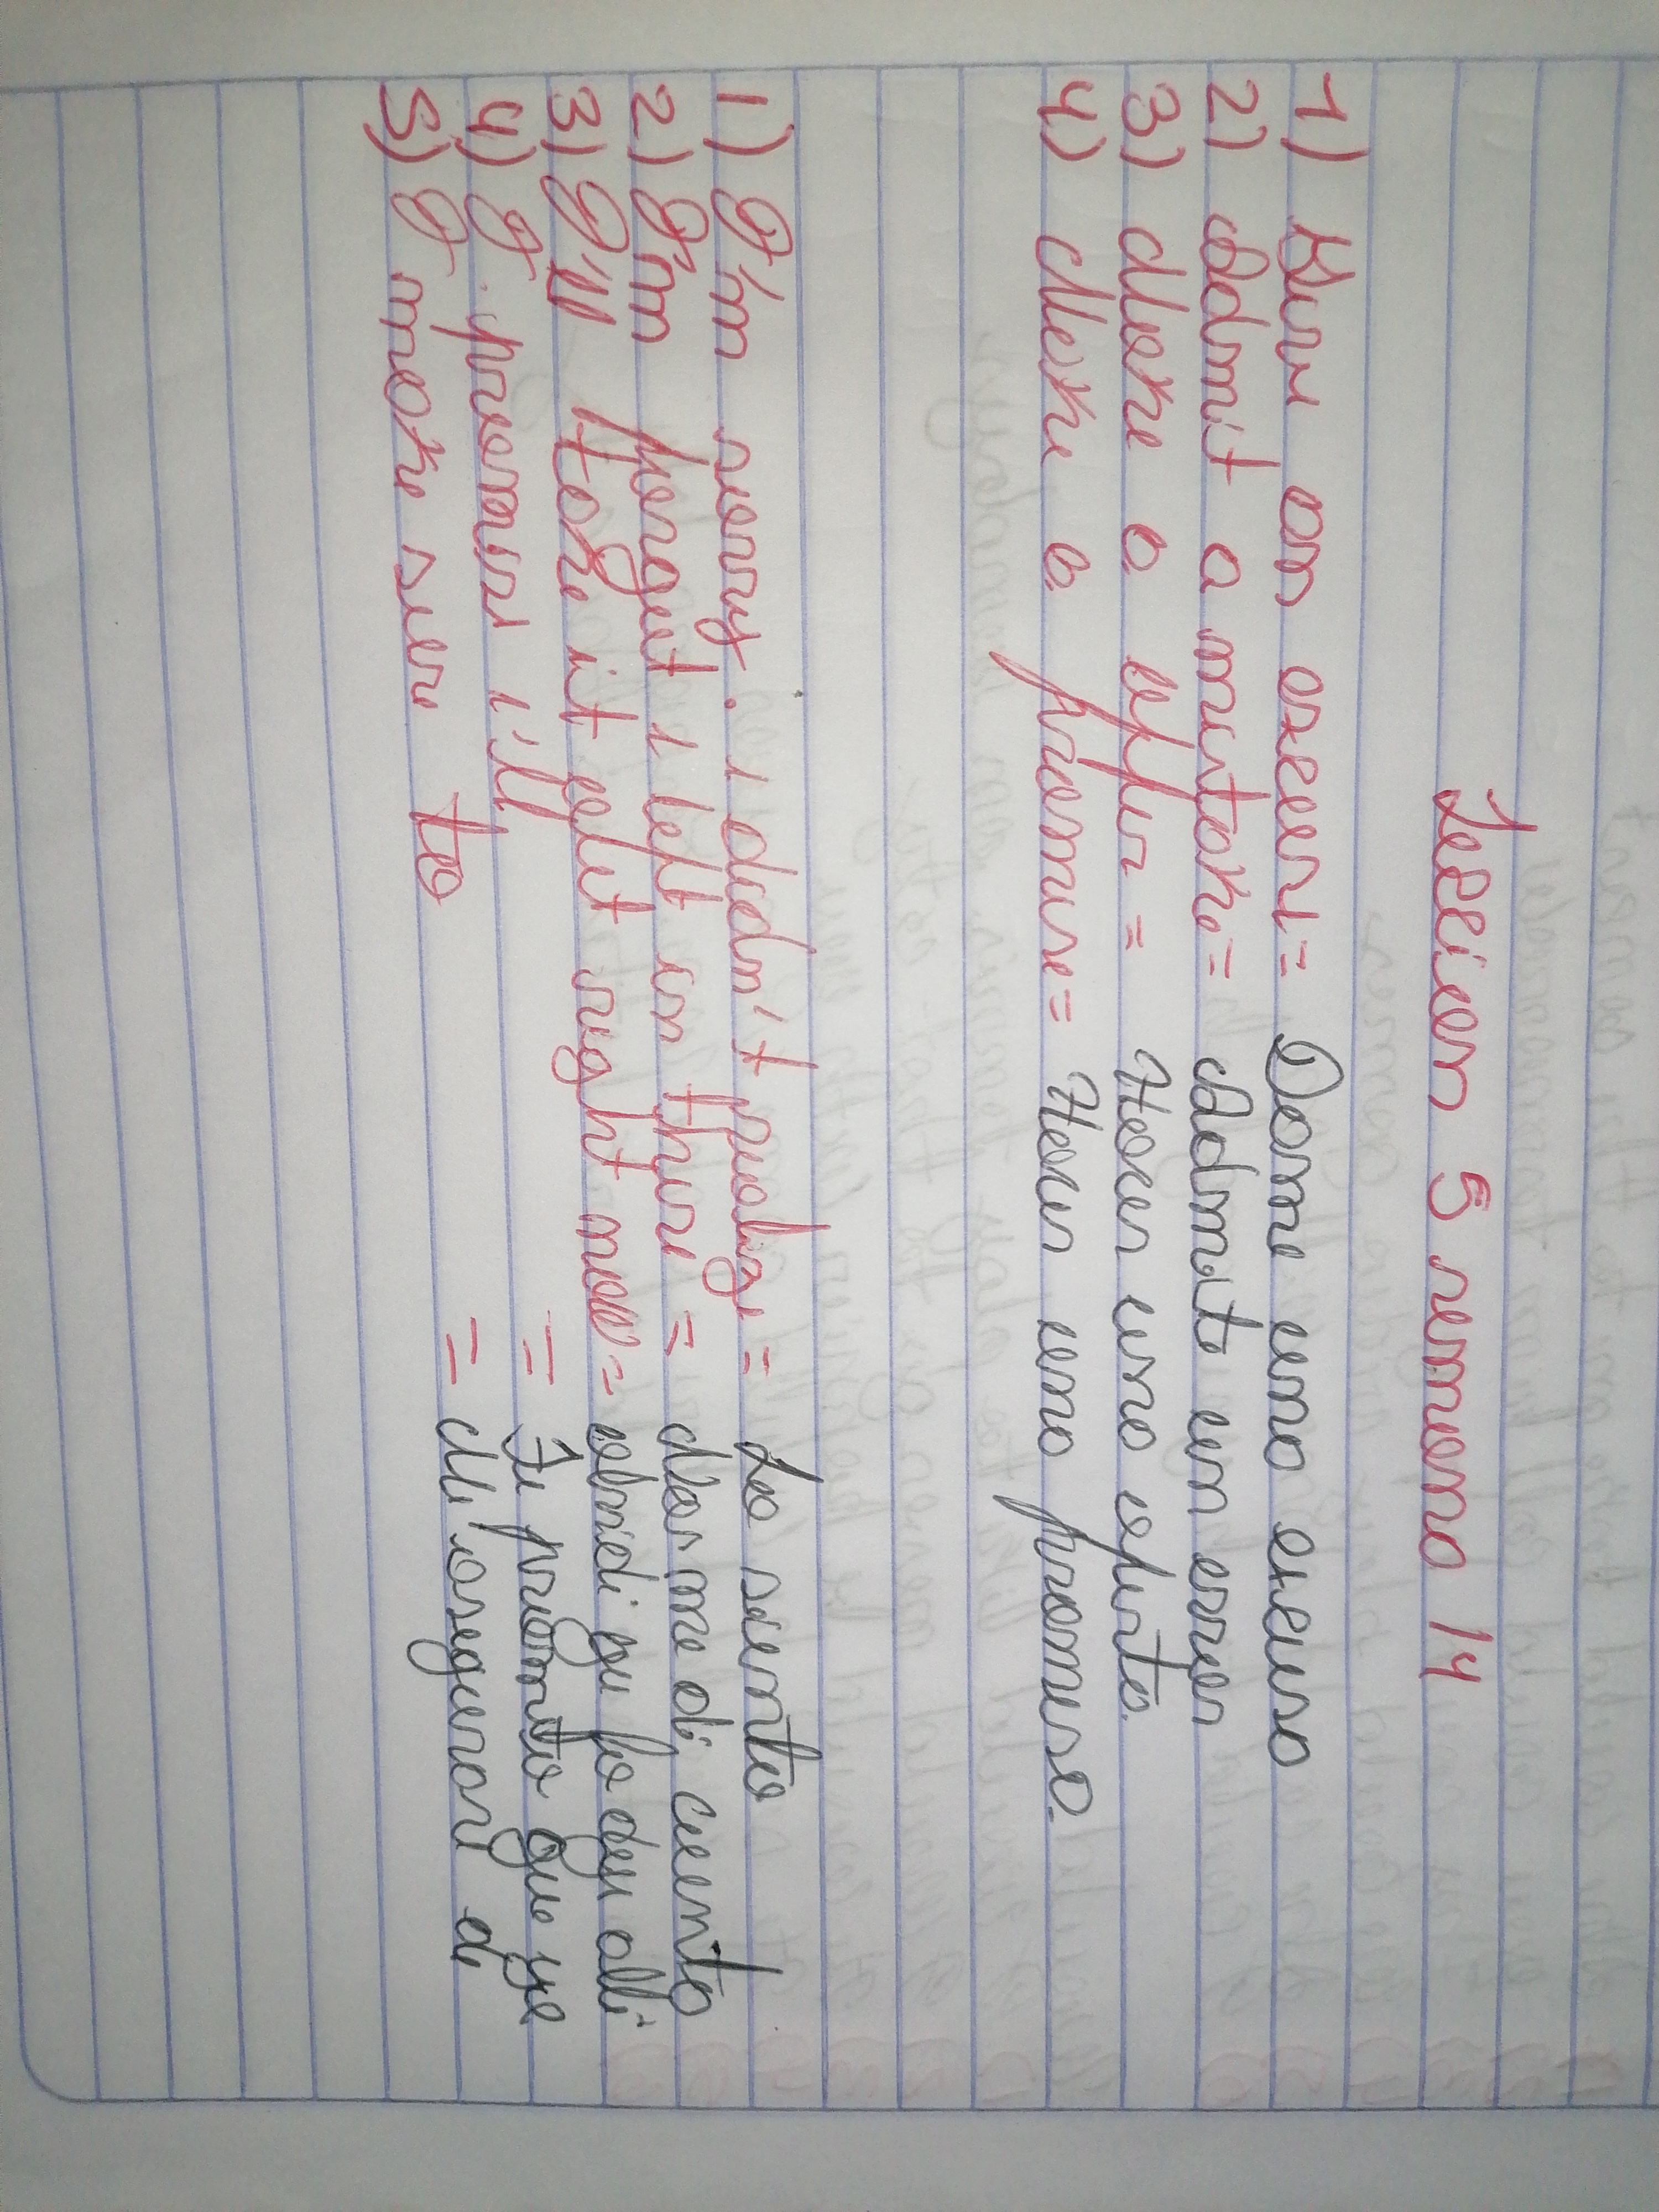 Leccion 5 semana 14
1) Give an excuse = Dame una excusa
2) Admit a mistake = Admite un error
3) Make a offer = Hacer una oferta.
4) Make a promise = Hacer una promesa.
1) I'm sorry. I didn't realize = Lo siento
2) I'm forget I left in there = Mas me di cuenta
3) I'll take it right now = olvidi que lo deje alli
4) I promise I'll = Te prometo que yo
5) I make sure to = Me asegurare de